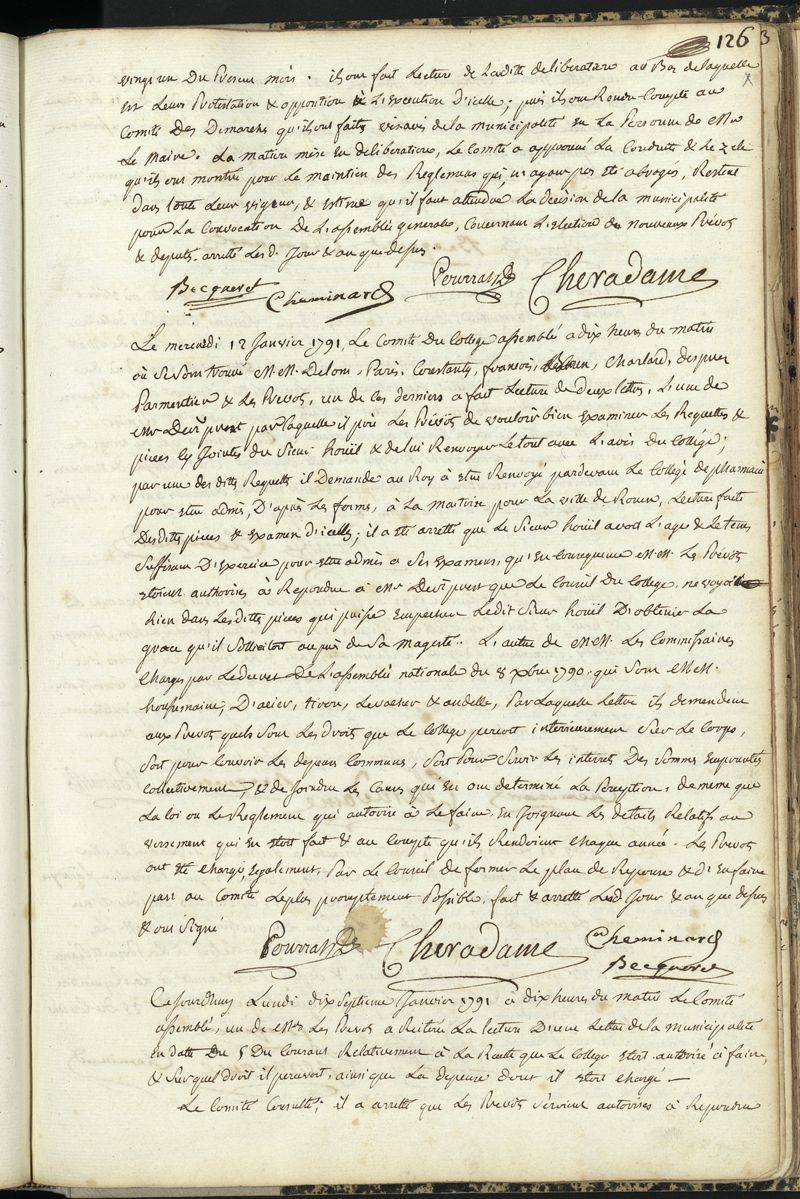 126 3
vingt un Du Present mois. ils ont fait Lecture de Ladite deliberation au Bas de laquelle
est Leurs Protestation & opposition à L'Execution d'icelle; puis ils ont Rendu Compte au
Comité Des Demarches qu'ils ont faites visavis de la municipalité en La Personne de Mr
Le Maire. La matiere mise En deliberations, Le Comité a approuvé La Conduite & Le zele
qu'ils ont montré pour Le maintien des Reglemens qui, n'ayant pas eté abrogés, Restent
dans toute Leur vigueur, & Estime qu'il faut attendre La decision de la municipalité
pour La Convocation De L'assemblée generale, Concernant L'election de nouveaux Prévôts
& deputés. arrêté Lesd. Jour & an que dessus.
Becqueret Cheminard Pourrat Cheradame
Le mercredi 12 Janvier 1791, Le Comité Du College assemblé a dix heures du matin
où se sont trouvé M.M. Delon, Paris, Constantin, francois, Charlard, despruez
Parmentier & Les Prevots, un de ces derniers a fait Lecture de deux lettres, L'une de
Mr par Laquelle il prie Les Prévôts de vouloir bien Examiner Les Requettes &
pieces Cy Jointes du Sieur houïl & de lui Renvoyer Le tout avec L'avis Du College;
par une des dittes Requettes il Demande au Roy à etre Renvoyé pardevant Le College de pharmacie
pour etre admis, D'après Les formes, à La maitrise pour La ville de Rouen, Lecture faite
Des dittes pieces & Examen d'icelles; il a eté arretté que Le Sieur houïl avoit L'age & Le tems
suffisant D'Exercice pour etre admis a Ses Examens, qu'En Consequence M.M. Les Prévôts
etoient authorisés à Repondre à Mr que Le Conseil du College, ne voyoit
Rien dans Les dittes pieces qui puisse Empecher Ledit Sieur houïl D'obtenir La
grace qu'il Sollicitoit auprès de Sa Majesté. L'autre de MM. Les Commissaires
Chargés par Le decret De L'assemblée nationale du 8 Xbre 1790, qui sont M.M.
houssemaine, D'acier, tiron, Levacher & andelle, Par Laquelle Lettre ils demandent
aux Prevots quels Sont Les Droits que Le College percoit interieurement Sur Le Corps,
Soit pour Couvrir Les depenses Communes, Soit Pour Servir Les interets Des Sommes Empruntées
Collectivement, & de Joindre Les Causes qui En ont determiné La Perception, de meme que
La loi ou Le Reglement qui autorise à Le faire, En Joignant Les details Relatifs au
versement qui En etoit fait & au Compte qu'ils Rendoient Chaque année. Les Prevots
ont eté Chargé, Egalement, Par Le Conseil de former Le plan de Reponse & d'En faire
part au Comité Le plus promptement Possible, fait & arretté Lesd. Jour & an que dessus
& ont Signé
Pourrat Cheradame Cheminard
Becqueret
Cejourdhuy Lundi dix Septieme Janvier 1791 à dix heures du matin Le Comité
assemblé, un de Mrs Les Prevots a Reiteré La lecture D'une Lettre de la municipalité
En datte Du 5 Du Courant Relativement à La Recette que Le College etoit autorisé à faire,
& Sur quel droit il percevoit, ainsi que La depense dont il etoit Chargé —
Le Comité Consulté; il a arretté que Les Prevots Seroient autorisés à Repondre